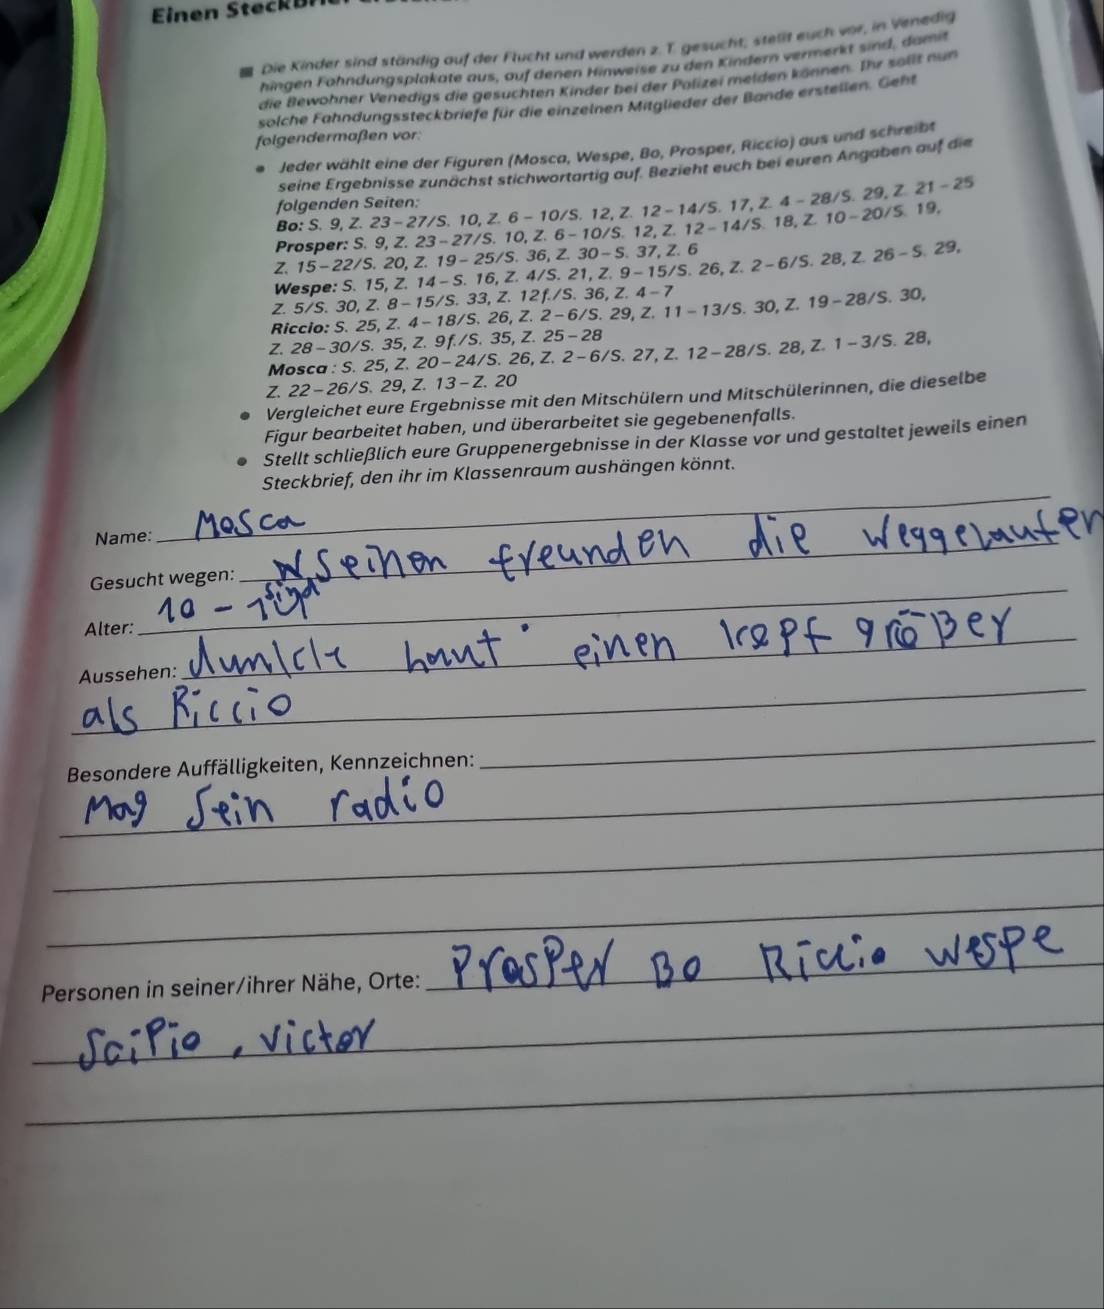 Einen
Die Kinder sind ständig auf der Flucht und werden z. T. gesucht; stellt euch vor, in Venedig
hingen Fahndungsplakate aus, auf denen Hinweise zu den Kindern vermerkt sind, damit
die Bewohner Venedigs die gesuchten Kinder bei der Polizei melden können. Ihr sollt nun
solche Fahndungssteckbriefe für die einzelnen Mitglieder der Bande erstellen. Geht
folgendermaßen vor:
• Jeder wählt eine der Figuren (Mosca, Wespe, Bo, Prosper, Riccio) aus und schreibt
seine Ergebnisse zunächst stichwortartig auf. Bezieht euch bei euren Angaben auf die
folgenden Seiten:
Bo: S. 9, Z. 23 – 27/S. 10, Z. 6 – 10/S. 12, Z. 12 – 14/S. 17, Z. 4 – 28/S. 29, Z. 21 – 25
Prosper: S. 9, Z. 23 – 27/S. 10, Z. 6 – 10/S. 12, Z. 12 – 14/S. 18, Z. 10 – 20/S. 19,
Z. 15 – 22/S. 20, Z. 19 – 25/S. 36, Z. 30 – S. 37, Z. 6
Wespe: S. 15, Z. 14 – S. 16, Z. 4/S. 21, Z. 9 – 15/S. 26, Z. 2 – 6/S. 28, Z. 26 – S. 29,
Z. 5/S. 30, Z. 8 – 15/S. 33, Z. 12 f./S. 36, Z. 4 – 7
Riccio: S. 25, Z. 4 – 18/S. 26, Z. 2 – 6/S. 29, Z. 11 – 13/S. 30, Z. 19 – 28/S. 30,
Z. 28 – 30/S. 35, Z. 9 f./S. 35, Z. 25 – 28
Mosca : S. 25, Z. 20 – 24/S. 26, Z. 2 – 6/S. 27, Z. 12 – 28/S. 28, Z. 1 – 3/S. 28,
Z. 22 – 26/S. 29, Z. 13 – Z. 20
• Vergleichet eure Ergebnisse mit den Mitschülern und Mitschülerinnen, die dieselbe
Figur bearbeitet haben, und überarbeitet sie gegebenenfalls.
• Stellt schließlich eure Gruppenergebnisse in der Klasse vor und gestaltet jeweils einen
Steckbrief, den ihr im Klassenraum aushängen könnt.
Name: Mosca
Gesucht wegen: seinen freunden die weggelaufen
sind
Alter: 10 -
Aussehen: haut einen kopf größer
als Riccio
Besondere Auffälligkeiten, Kennzeichnen:
Mag sein radio
Personen in seiner/ihrer Nähe, Orte: Prosper Bo Riccio wespe
Scipio, victor